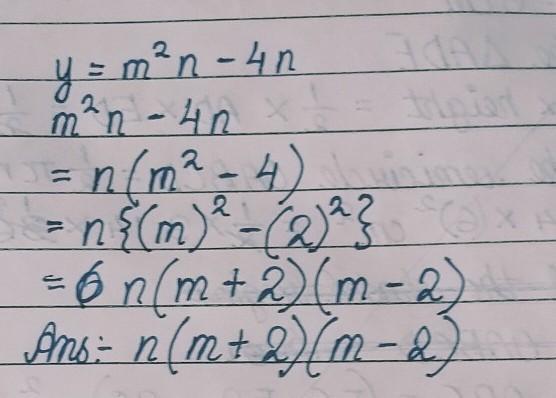 y = m²n - 4n
m²n - 4n
= n(m² - 4)
= n{(m)² - (2)²}
= 6 n(m + 2)(m - 2)
Ans:- n(m + 2)(m - 2)